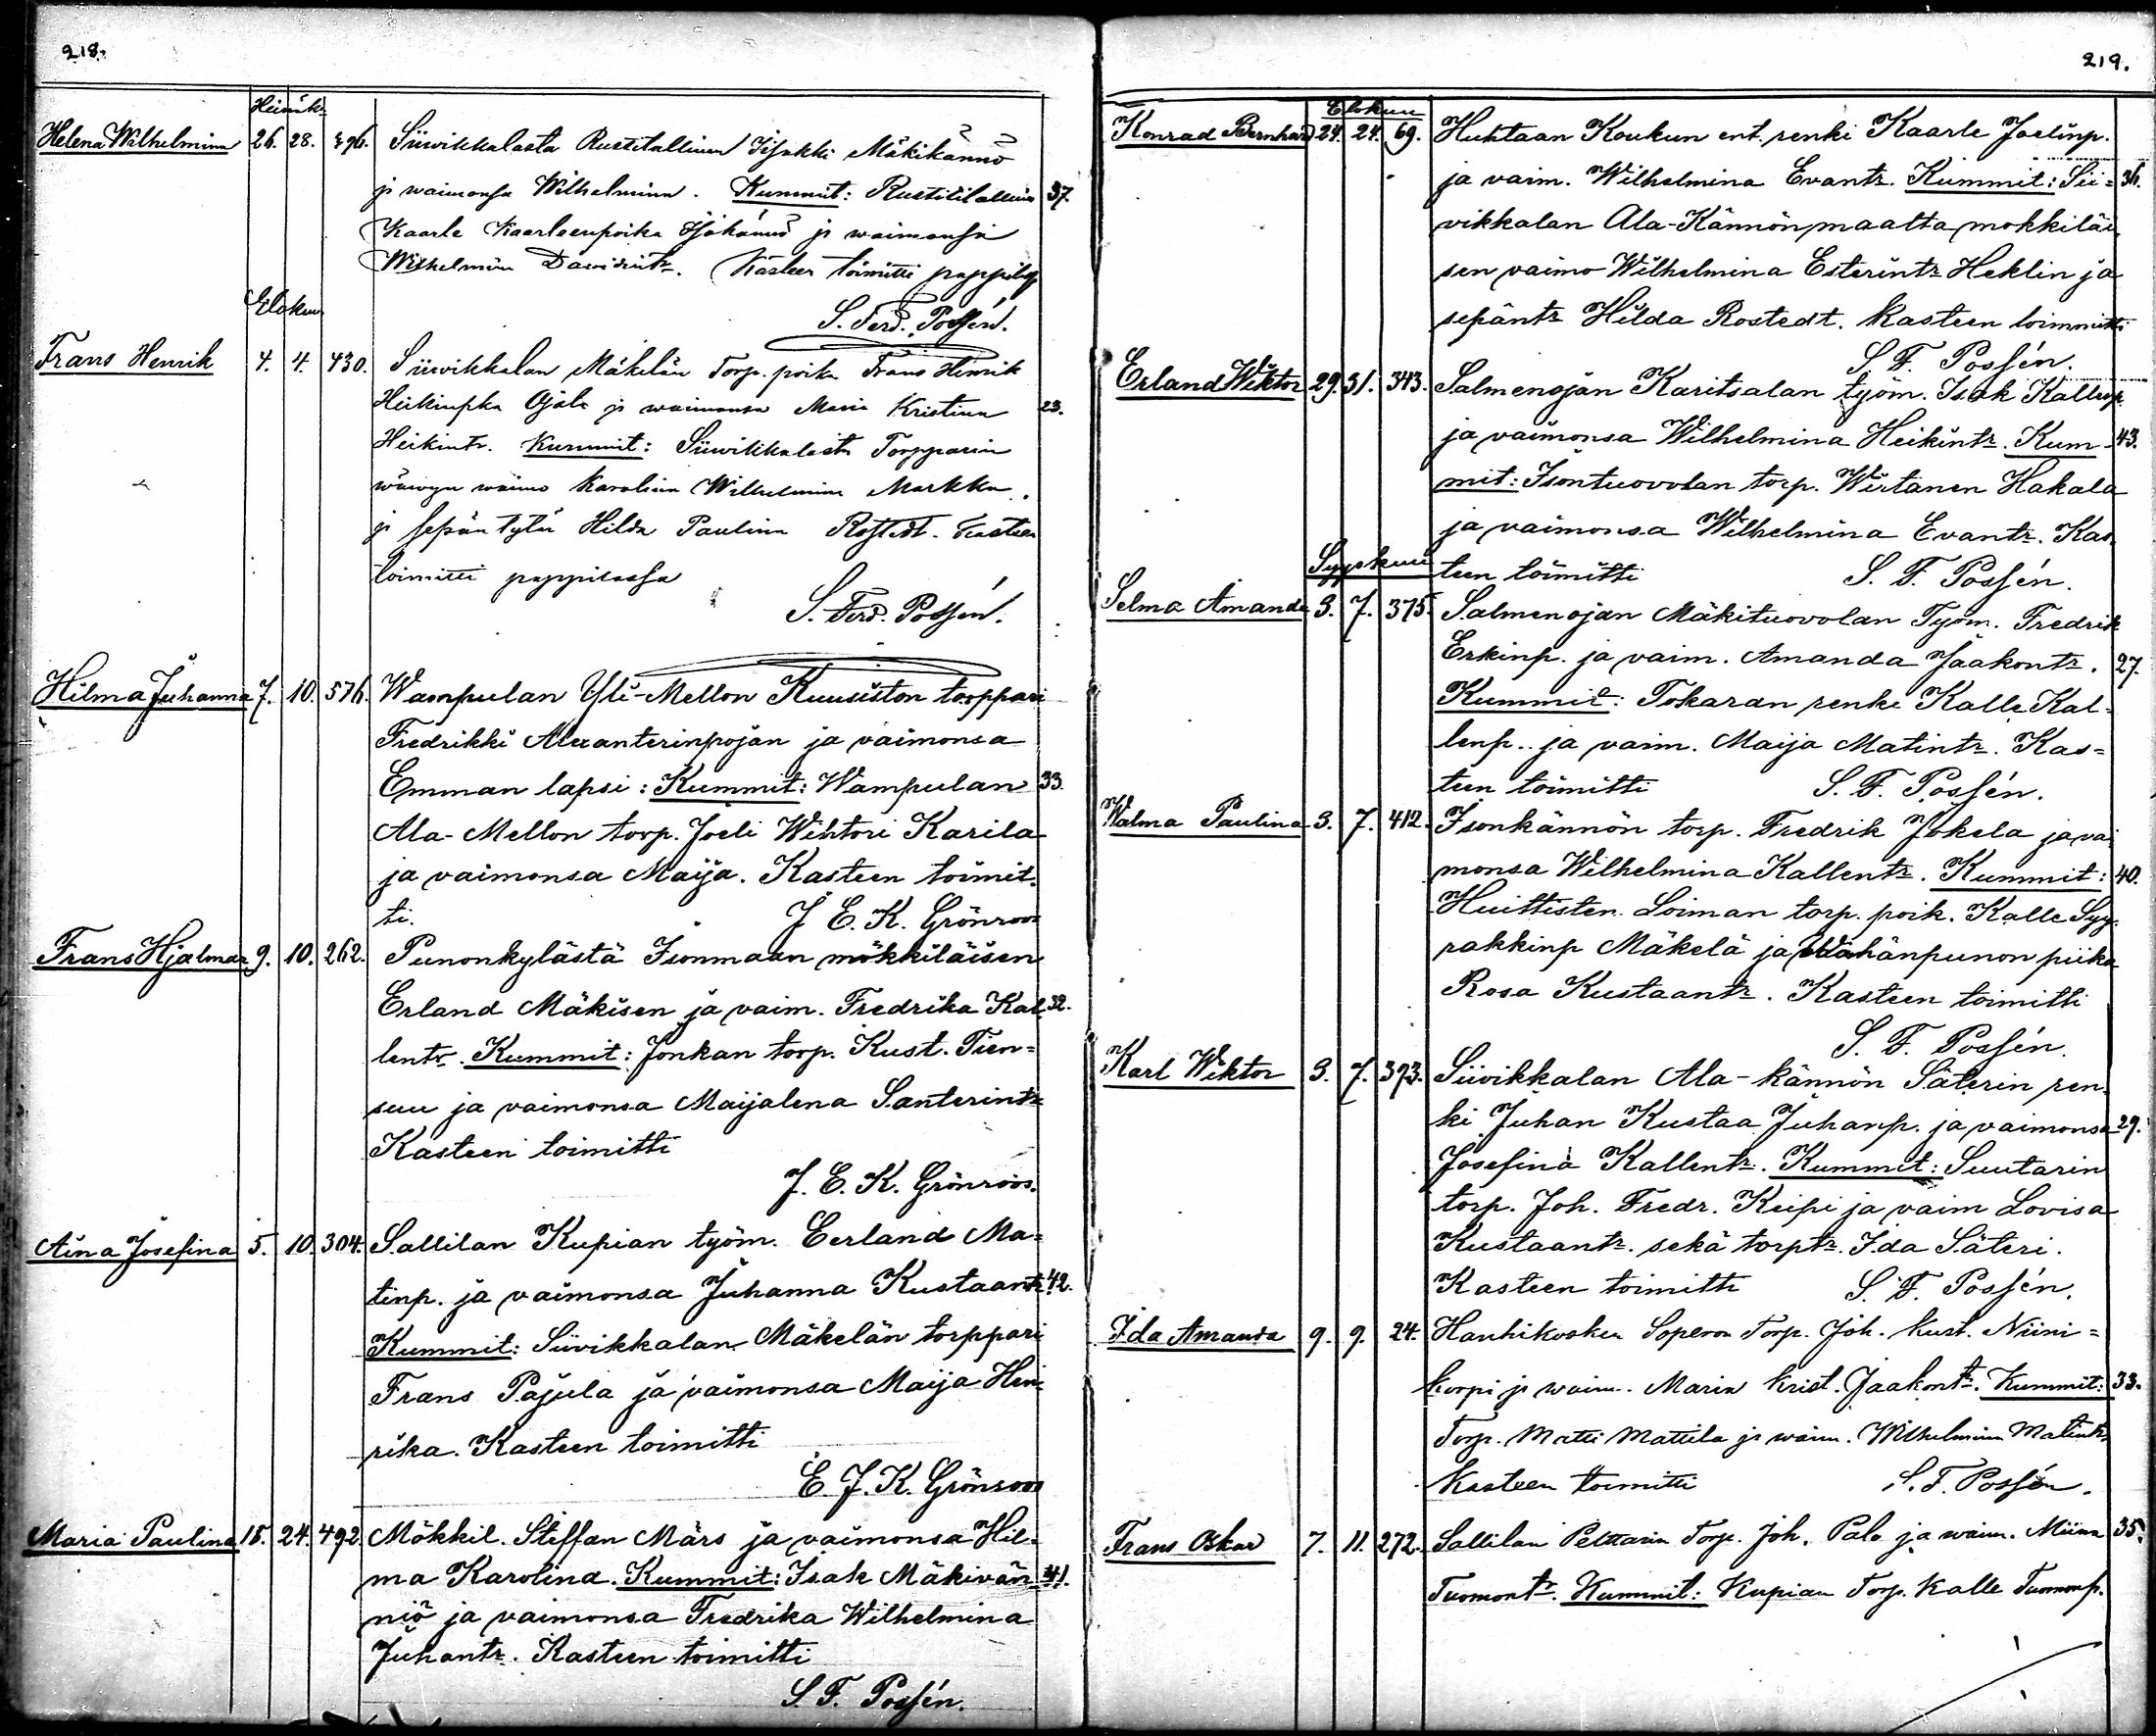 218.
Heinäk.
Helena Wilhelmina 26. 28. 396. Siiwikkalasta Rustitallinen Iisakki Mäkikännö
ja waimonsa Wilhelmina. Kummit: Rustitilallinen 37.
Kaarle Kaarleenpoika ja waimonsa
Wilhelmina Davidintr. Kasteen toimitti pappilassa
S. Ferd. Possén.
Elokuu
Frans Henrik 4. 4. 430. Siiwikkalan Mäkelän Torp. poika Frans Henrik
Heikinpka Ojala ja waimonsa Maria Kristina 23.
Heikintr. Kummit: Siiwikkalasta Torpparin
wäwyn waimo Karolina Wilhelmina Markku
ja sepän tytär Hilda Paulina Rostedt. Kasteen
toimitti pappilassa
S. Ferd. Possén.
Hilma Juhanna 7. 10. 576. Wampulan Yli-Mellon Kuusiston torppari
Fredrikki Alexanterinpojan ja vaimonsa
Emman lapsi: Kummit: Wampulan 33.
Ala-Mellon torp. Joeli Wihtori Karila
ja vaimonsa Maija. Kasteen toimit-
ti. J E. K. Grönroos
Frans Hjalmar 9. 10. 262. Punonkylästä Isonmaan mökkiläisen
Erland Mäkisen ja vaim. Fredrika Kal- 32.
lentr. Kummit: Jonkan torp. Kust. Tien=
suu ja vaimonsa Maijalena Santerintr
Kasteen toimitti
J. E. K. Grönroos.
Aina Josefina 5. 10. 304. Sallilan Kupian työm. Eerland Ma=
tinp. ja vaimonsa Juhanna Kustaantr. 42.
Kummit: Siivikkalan Mäkelän torppari
Frans Pajula ja vaimonsa Maija Hen-
rika. Kasteen toimitti
E. J. K. Grönroos
Maria Paulina 15. 24. 492. Mökkil. Steffan Märs ja vaimonsa Hil-
ma Karolina. Kummit: Isak Mäkivän- 41.
niö ja vaimonsa Fredrika Wilhelmina
Juhantr. Kasteen toimitti
S. F. Possén.
219.
Elokuu
Konrad Bernhard 24. 24. 69. Huhtaan Koukun ent. renki Kaarle Joelinp.
ja vaim. Wilhelmina Evantr. Kummit: Sii= 36.
vikkalan Ala-Kännönmaalta mökkiläi
sen vaimo Wilhelmina Esterintr Heklin ja
sepäntr Hilda Rostedt. Kasteen toimmitti
S F. Possén.
Erland Wiktor 29. 31. 343. Salmenojan Karitsalan työm. Isak Kallenp.
ja vaimonsa Wilhelmina Heikintr. Kum- 43.
mit: Isontuovolan torp. Wirtanen Hakala
ja vaimonsa Wilhelmina Evantr. Kas
teen toimitti S. F. Possén.
Syyskuu
Selma Amanda 3. 7. 375. Salmenojan Mäkituovolan Työm. Fredrik
Erkinp. ja vaim. Amanda Jaakontr. 27.
Kummit: Tokaran renki Kalle Kal-
lenp. ja vaim. Maija Matintr. Kas=
teen toimitti S. F. Possén.
Walma Paulina 3. 7. 412. Isonkännön torp. Fredrik Jokela ja vai
monsa Wilhelmina Kallentr. Kummit: 40.
Huittisten Loiman torp. poik. Kalle Syy
rakkinp Mäkelä ja Wähänpunon piika
Rosa Kustaantr. Kasteen toimitti
S. F. Possén.
Karl Wiktor 3. 7. 393. Siivikkalan Ala-kännön Säterin ren-
ki Juhan Kustaa Juhanp. ja vaimonsa 29.
Josefina Kallentr. Kummit: Suutarin
torp. Joh. Fredr. Keipi ja vaim Lovisa
Kustaantr. sekä torptr. Ida Säteri.
Kasteen toimitti S. F. Possén.
Ida Amanda 9. 9. 24. Hanhikosken Soperon Torp. Joh. Kust. Niini=
korpi ja waim. Maria Krist. Jaakontr. Kummit: 33.
Torp. Matti Mattila ja waim. Wilhelmina Matintr.
Kasteen toimitti S. F. Possén.
Frans Oskar 7. 11. 272. Sallilan Pelttarin Torp. Joh. Palo ja waim. Miina 35.
Tuomontr. Kummit: Kupian Torp. Kalle Tuomonp.